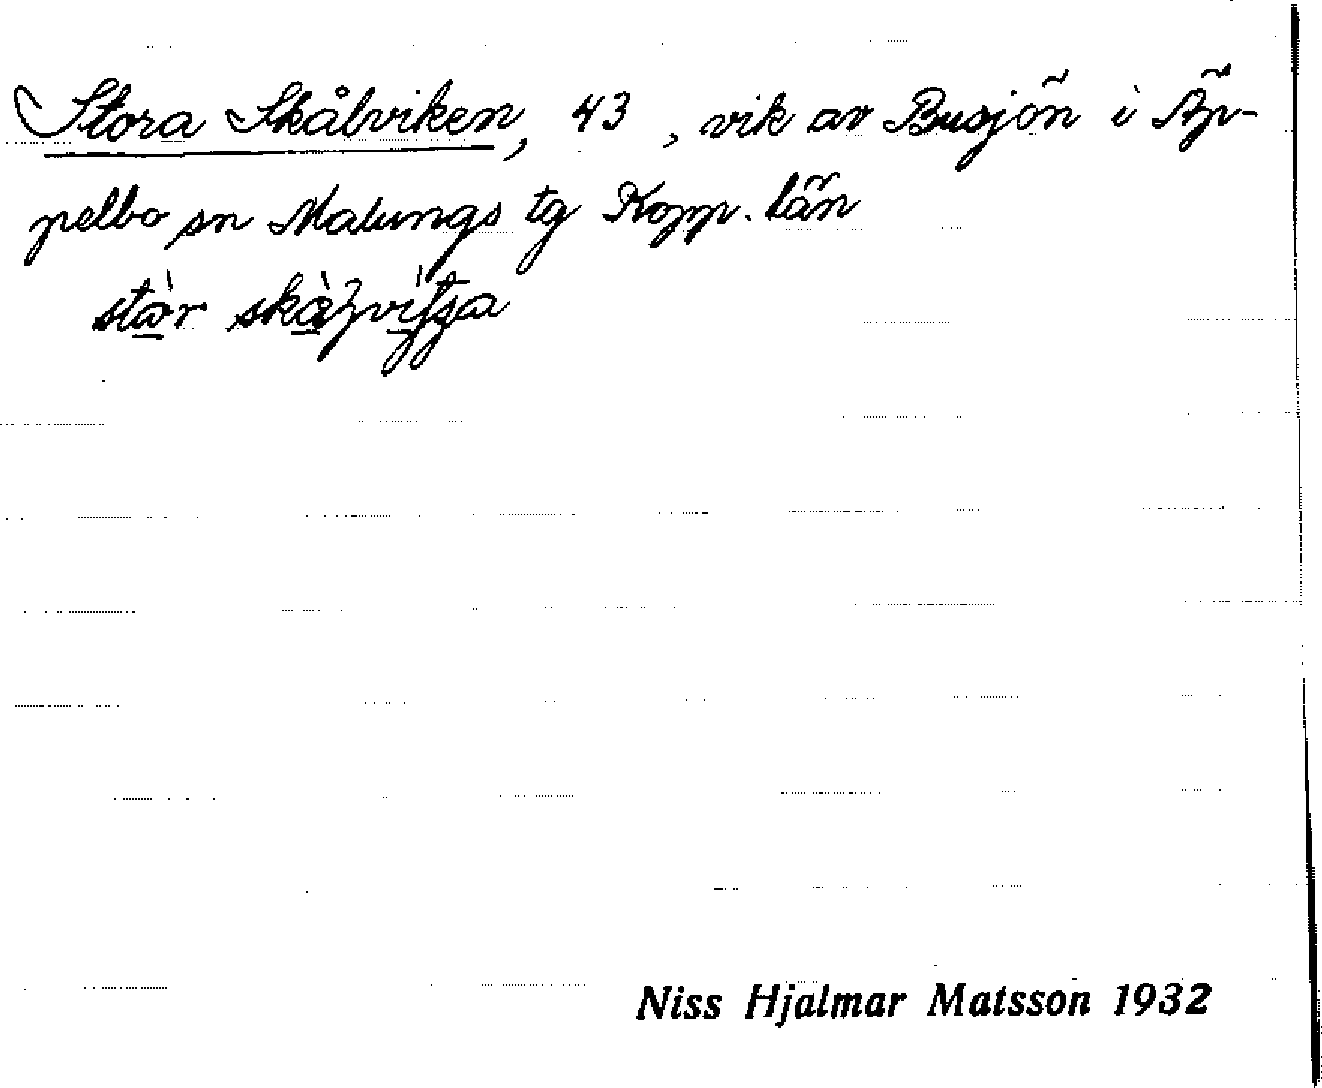 Stora Skålviken, 43, vik av Busjön i Äp-
pelbo sn Malungs tg Kopp. län
Niss Hjalmar Matsson 1932